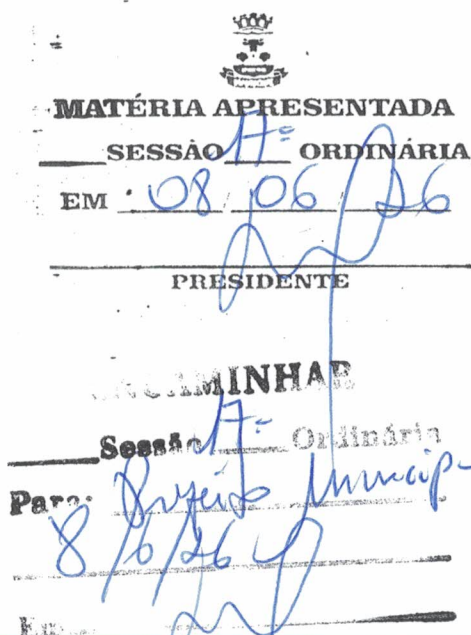 MATÉRIA APRESENTADA
SESSÃO 17ª ORDINÁRIA
EM 08/06/26
PRESIDENTE
ENCAMINHAR
Sessão 17ª Ordinária
Para: Municip
8/6/26
Em